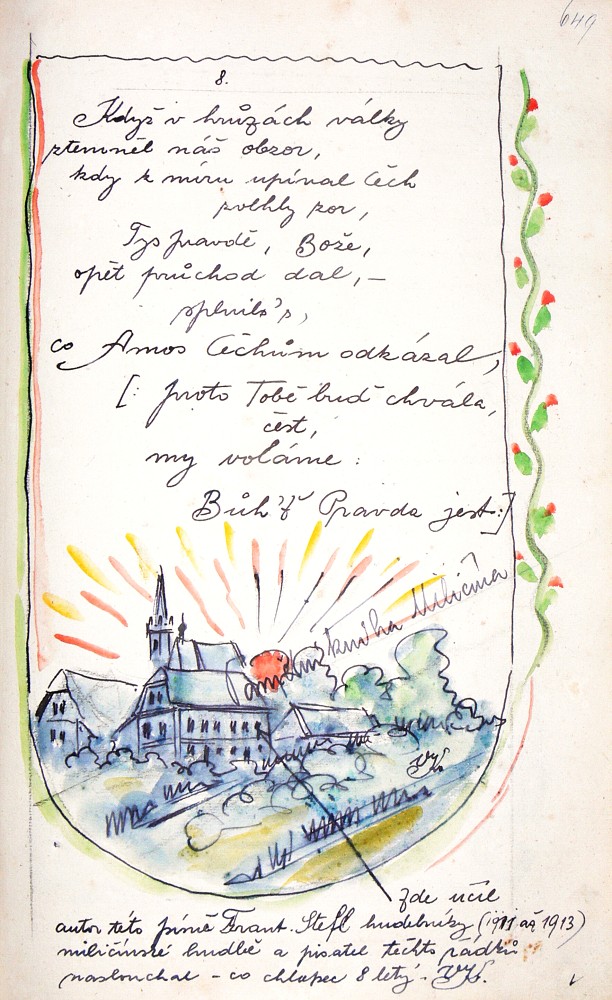 649
8.
Když v hrůzách války
ztemněl náš obzor,
kdy k míru upínal Čech
zvlhlý zor,
Tys pravdě, Bože,
opět průchod dal, –
splnils's,
co Amos Čechům odkázal,
[: proto Tobě buď chvála,
čest,
my voláme:
Bůh Pravda jest :]
kniha Miličína
Zde učil
autor této písně Frant. Štefl hudebníky (1911 až 1913)
miličínské hudbě a pisatel těchto řádků
naslouchal – co chlapec 8 letý.